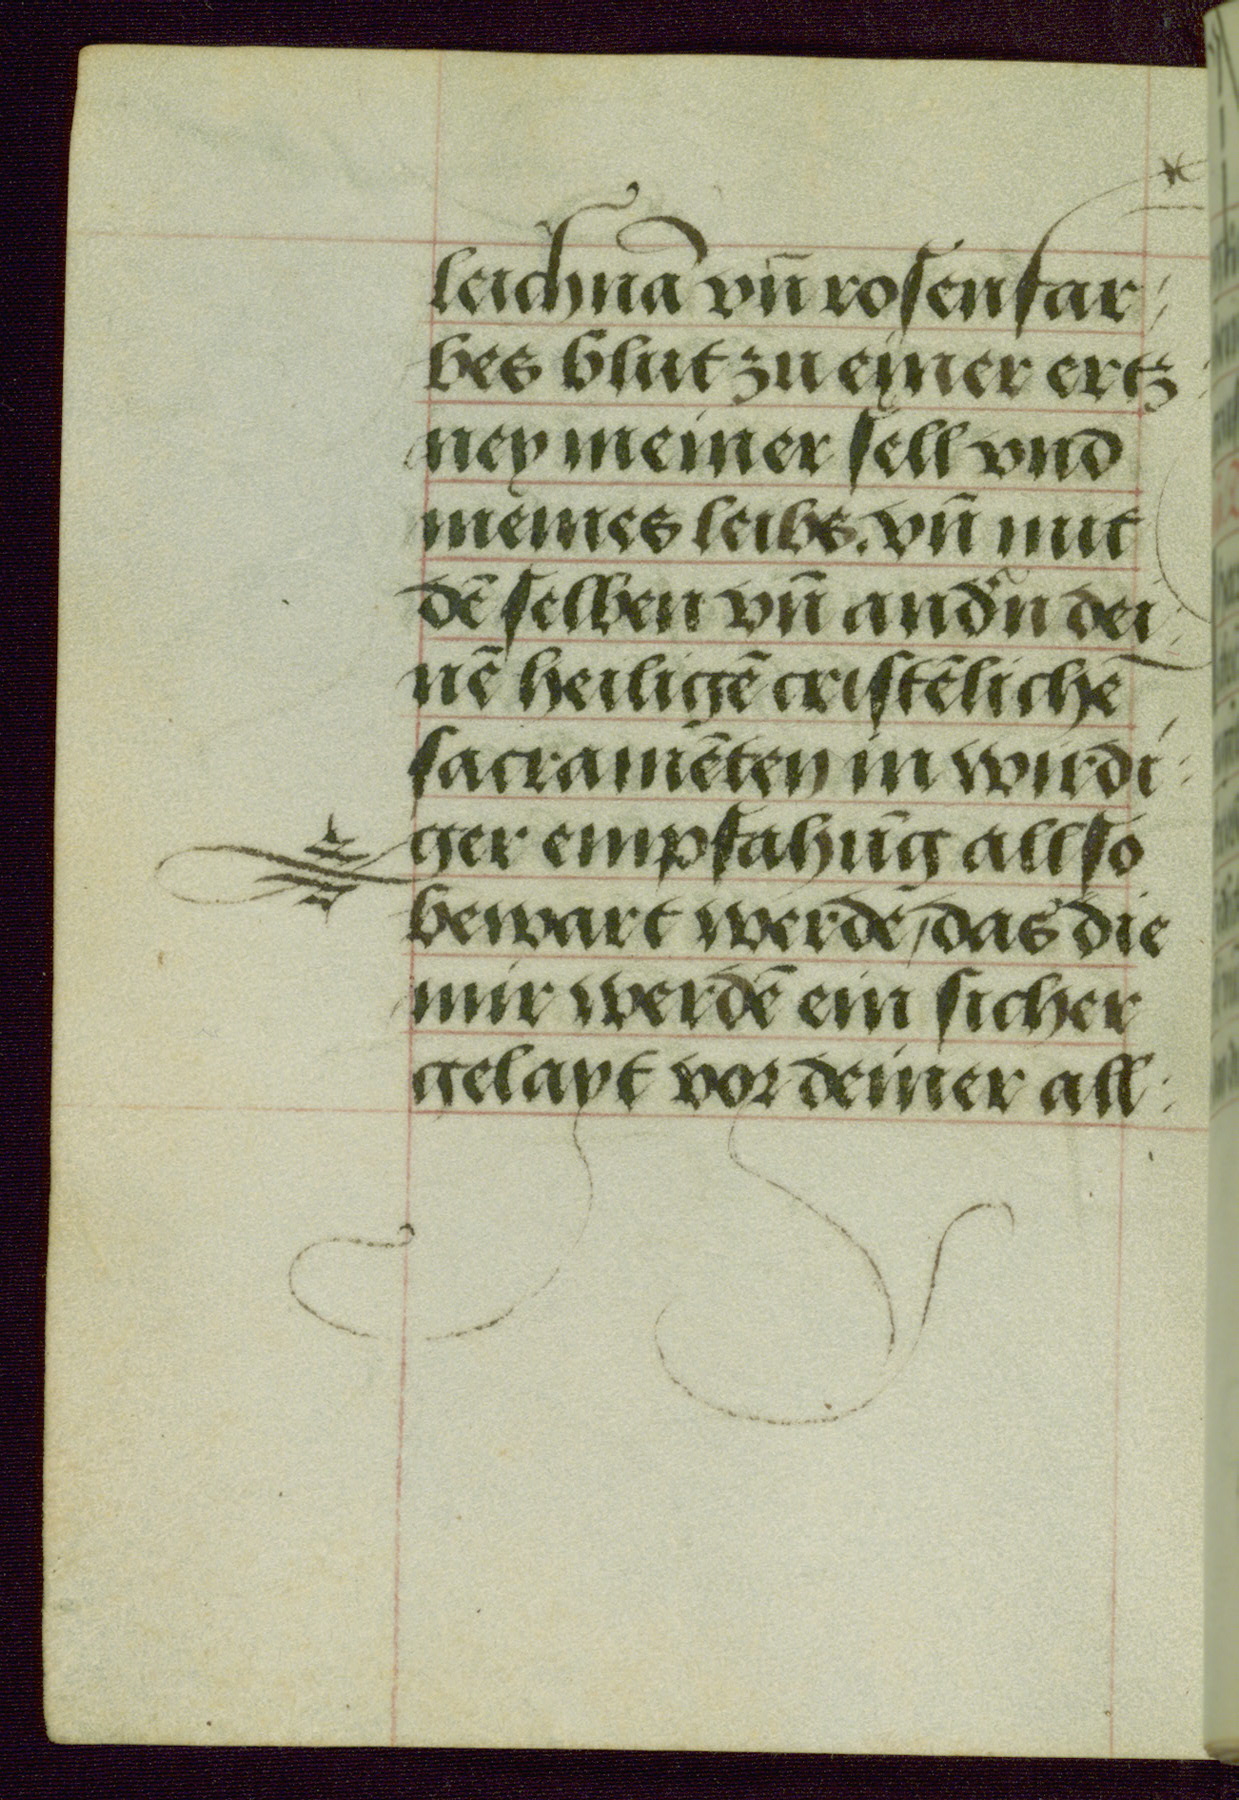 leichnā vn̄ rosenfar⸗
bes blut zu einer ertz⸗
ney meiner sell vnd
meines leibs. vn̄ mit
dē selben vn̄ andn̄ dei⸗
nē heiligē cristēlichē
sacramēten in wirdi⸗
ger empfahūg allso
bewart werdē, das die
mir werdē ein sicher
gelayt vor deiner all⸗